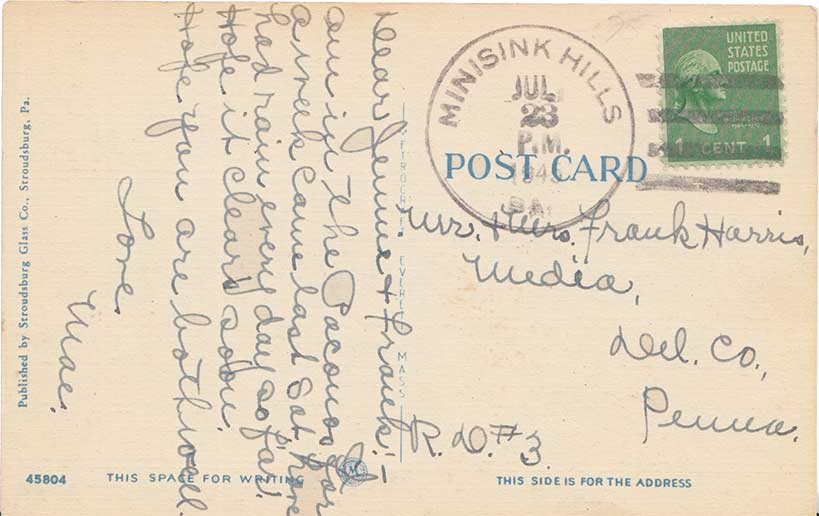 Dear Jennie & Frank: —
Am in the Poconos for
a week came last Sat. have
had rain every day so far.
Hope it clears soon.
Hope you are both well.
Love
Mae.
MINISINK HILLS
JUL
23
P.M.
PA.
UNITED
STATES
POSTAGE
1 CENT 1
POST CARD
Mr. & Mrs. Frank Harris,
Media,
Del. Co.,
Penna.
R. D. #3
Published by Stroudsburg Glass Co., Stroudsburg, Pa.
METROCRAFT EVERETT MASS
M
45804
THIS SPACE FOR WRITING
THIS SIDE IS FOR THE ADDRESS